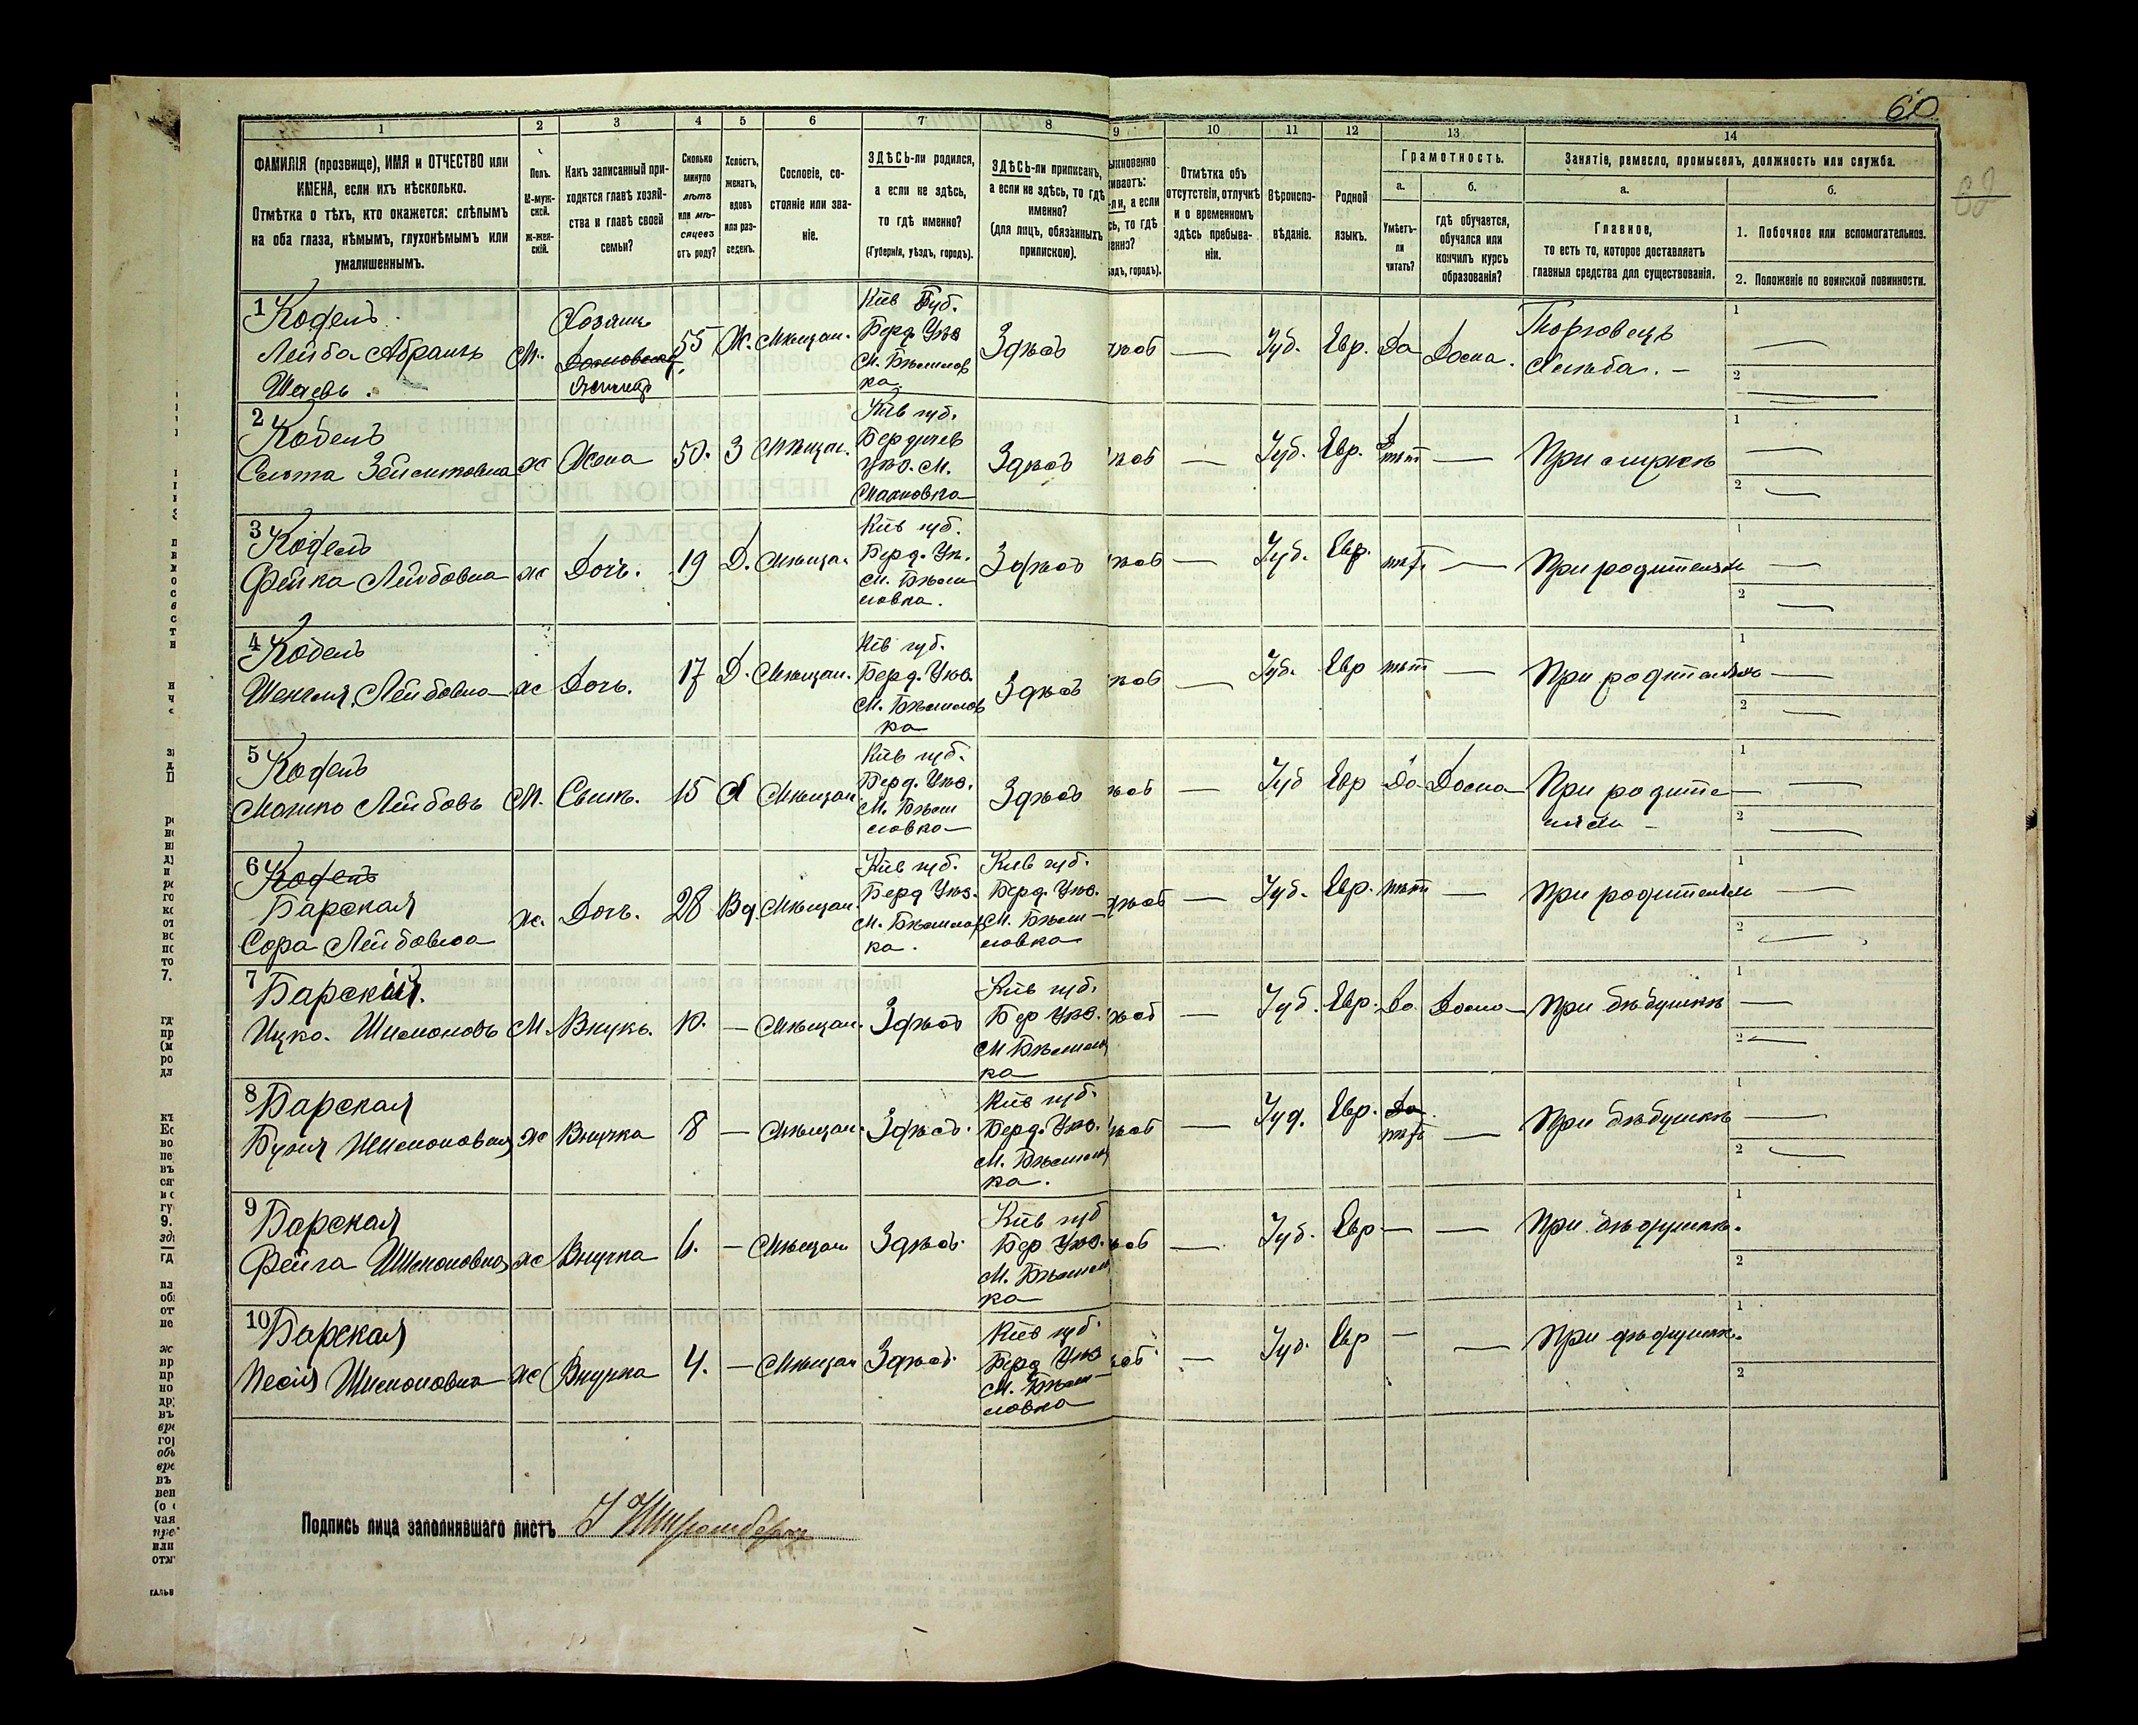 60
62
1 2 3 4 5 6 7 8 9 10 11 12 13 14
ФАМИЛІЯ (прозвище), ИМЯ и ОТЧЕСТВО или
ИМЕНА, если ихъ нѣсколько.
Отмѣтка о тѣхъ, кто окажется: слѣпымъ
на оба глаза, нѣмымъ, глухонѣмымъ или
умалишеннымъ.
Полъ.
М-муж-
ской.
Ж-жен-
скій.
Какъ записанный при-
ходится главѣ хозяй-
ства и главѣ своей
семьи?
Сколько
минуло
лѣтъ
или мѣ-
сяцевъ
отъ роду?
Холостъ,
женатъ,
вдовъ
или раз-
веденъ.
Сословіе, со-
стояніе или зва-
ніе.
ЗДѢСЬ-ли родился,
а если не здѣсь,
то гдѣ именно?
(Губернія, уѣздъ, городъ).
ЗДѢСЬ-ли приписанъ,
а если не здѣсь, то гдѣ
именно?
(для лицъ, обязанныхъ
припискою).
ыкновенно
живаетъ:
-ли, а если
сь, то гдѣ
менно?
здъ, городъ).
Отмѣтка объ
отсутствіи, отлучкѣ
и о временномъ
здѣсь пребыва-
ніи.
Вѣроиспо-
вѣданіе.
Родной
языкъ.
Грамотность.
а. б.
Умѣетъ-
ли
читать?
гдѣ обучается,
обучался или
кончилъ курсъ
образованія?
Занятіе, ремесло, промыселъ, должность или служба.
а. б.
Главное,
то есть то, которое доставляетъ
главныя средства для существованія.
1. Побочное или вспомогательное.
2. Положеніе по воинской повинности.
1 Кофелъ
Лейба Абрамъ
Шаевъ.
М. Хозяинъ
55 Ж. Мѣщан.
Кіев Губ.
Берд. Уѣз
М. Бѣлилов
ка
Здѣсь — Іуд. Евр. Да Дома.
Торговецъ
хлѣба. —
2 Кофелъ
ж Жена 50. З Мѣщан.
Кіев губ.
Бердичев
уѣз. М.
Махновка
Здѣсь — Іуд. Евр. нѣт — При мужѣ
3 Кофелъ
Фейга Лейбовна ж Дочь. 19 Д. Мѣщан.
Кіев губ.
Берд. Уѣ.
М. Бѣли
ловка.
Здѣсь — Іуд. Евр. нѣт. — При родителях
4 Кофелъ
Лейбовна ж Дочь. 17 Д. Мѣщан.
Кіев губ.
Берд. Уѣз.
М. Бѣлилов
ка
Здѣсь — Іуд. Евр нѣт — При родителях
5 Кофелъ
Мошко Лейбовъ М. Сынъ. 15 Х Мѣщан.
Кіев губ.
Берд. Уѣз.
М. Бѣли
ловка
Здѣсь — Іуд Евр Да Дома
При родите
лях —
6 Кофелъ
Барская
Сора Лейбовна
ж. Дочь. 28 Вд. Мѣщан.
Кіев губ.
Берд Уѣз.
М. Бѣлилов
ка.
Кіев губ.
Берд. Уѣз.
М. Бѣли-
ловка
— Іуд. Евр. нѣт — При родителях
7 Барскій.
Ицко. Шимоновъ М. Внукъ. 10. — Мѣщан. Здѣсь
Кіев губ.
Бер Уѣз.
М Бѣлилов
ка
— Іуд. Евр. Да Дома При дѣдушкѣ
8 Барская
Буня Шимоновна ж Внучка 8 — Мѣщан. Здѣсь.
Кіев губ.
Берд. Уѣз.
М. Бѣлилов
ка.
— Іуд. Евр. Да
нѣт — При дѣдушкѣ
9 Барская
Фейга Шимоновна ж Внучка 6. — Мѣщан Здѣсь.
Кіев губ
Бер Уѣз.
М. Бѣлилов
ка
— Іуд. Евр — — При дѣдушкѣ.
10 Барская
Песия Шимоновна ж Внучка 4. — Мѣщан Здѣсь.
Кіев губ.
Берд Уѣз
М. Бѣли-
ловка
— Іуд. Евр — — При дѣдушкѣ.
Подпись лица заполнявшаго листъ